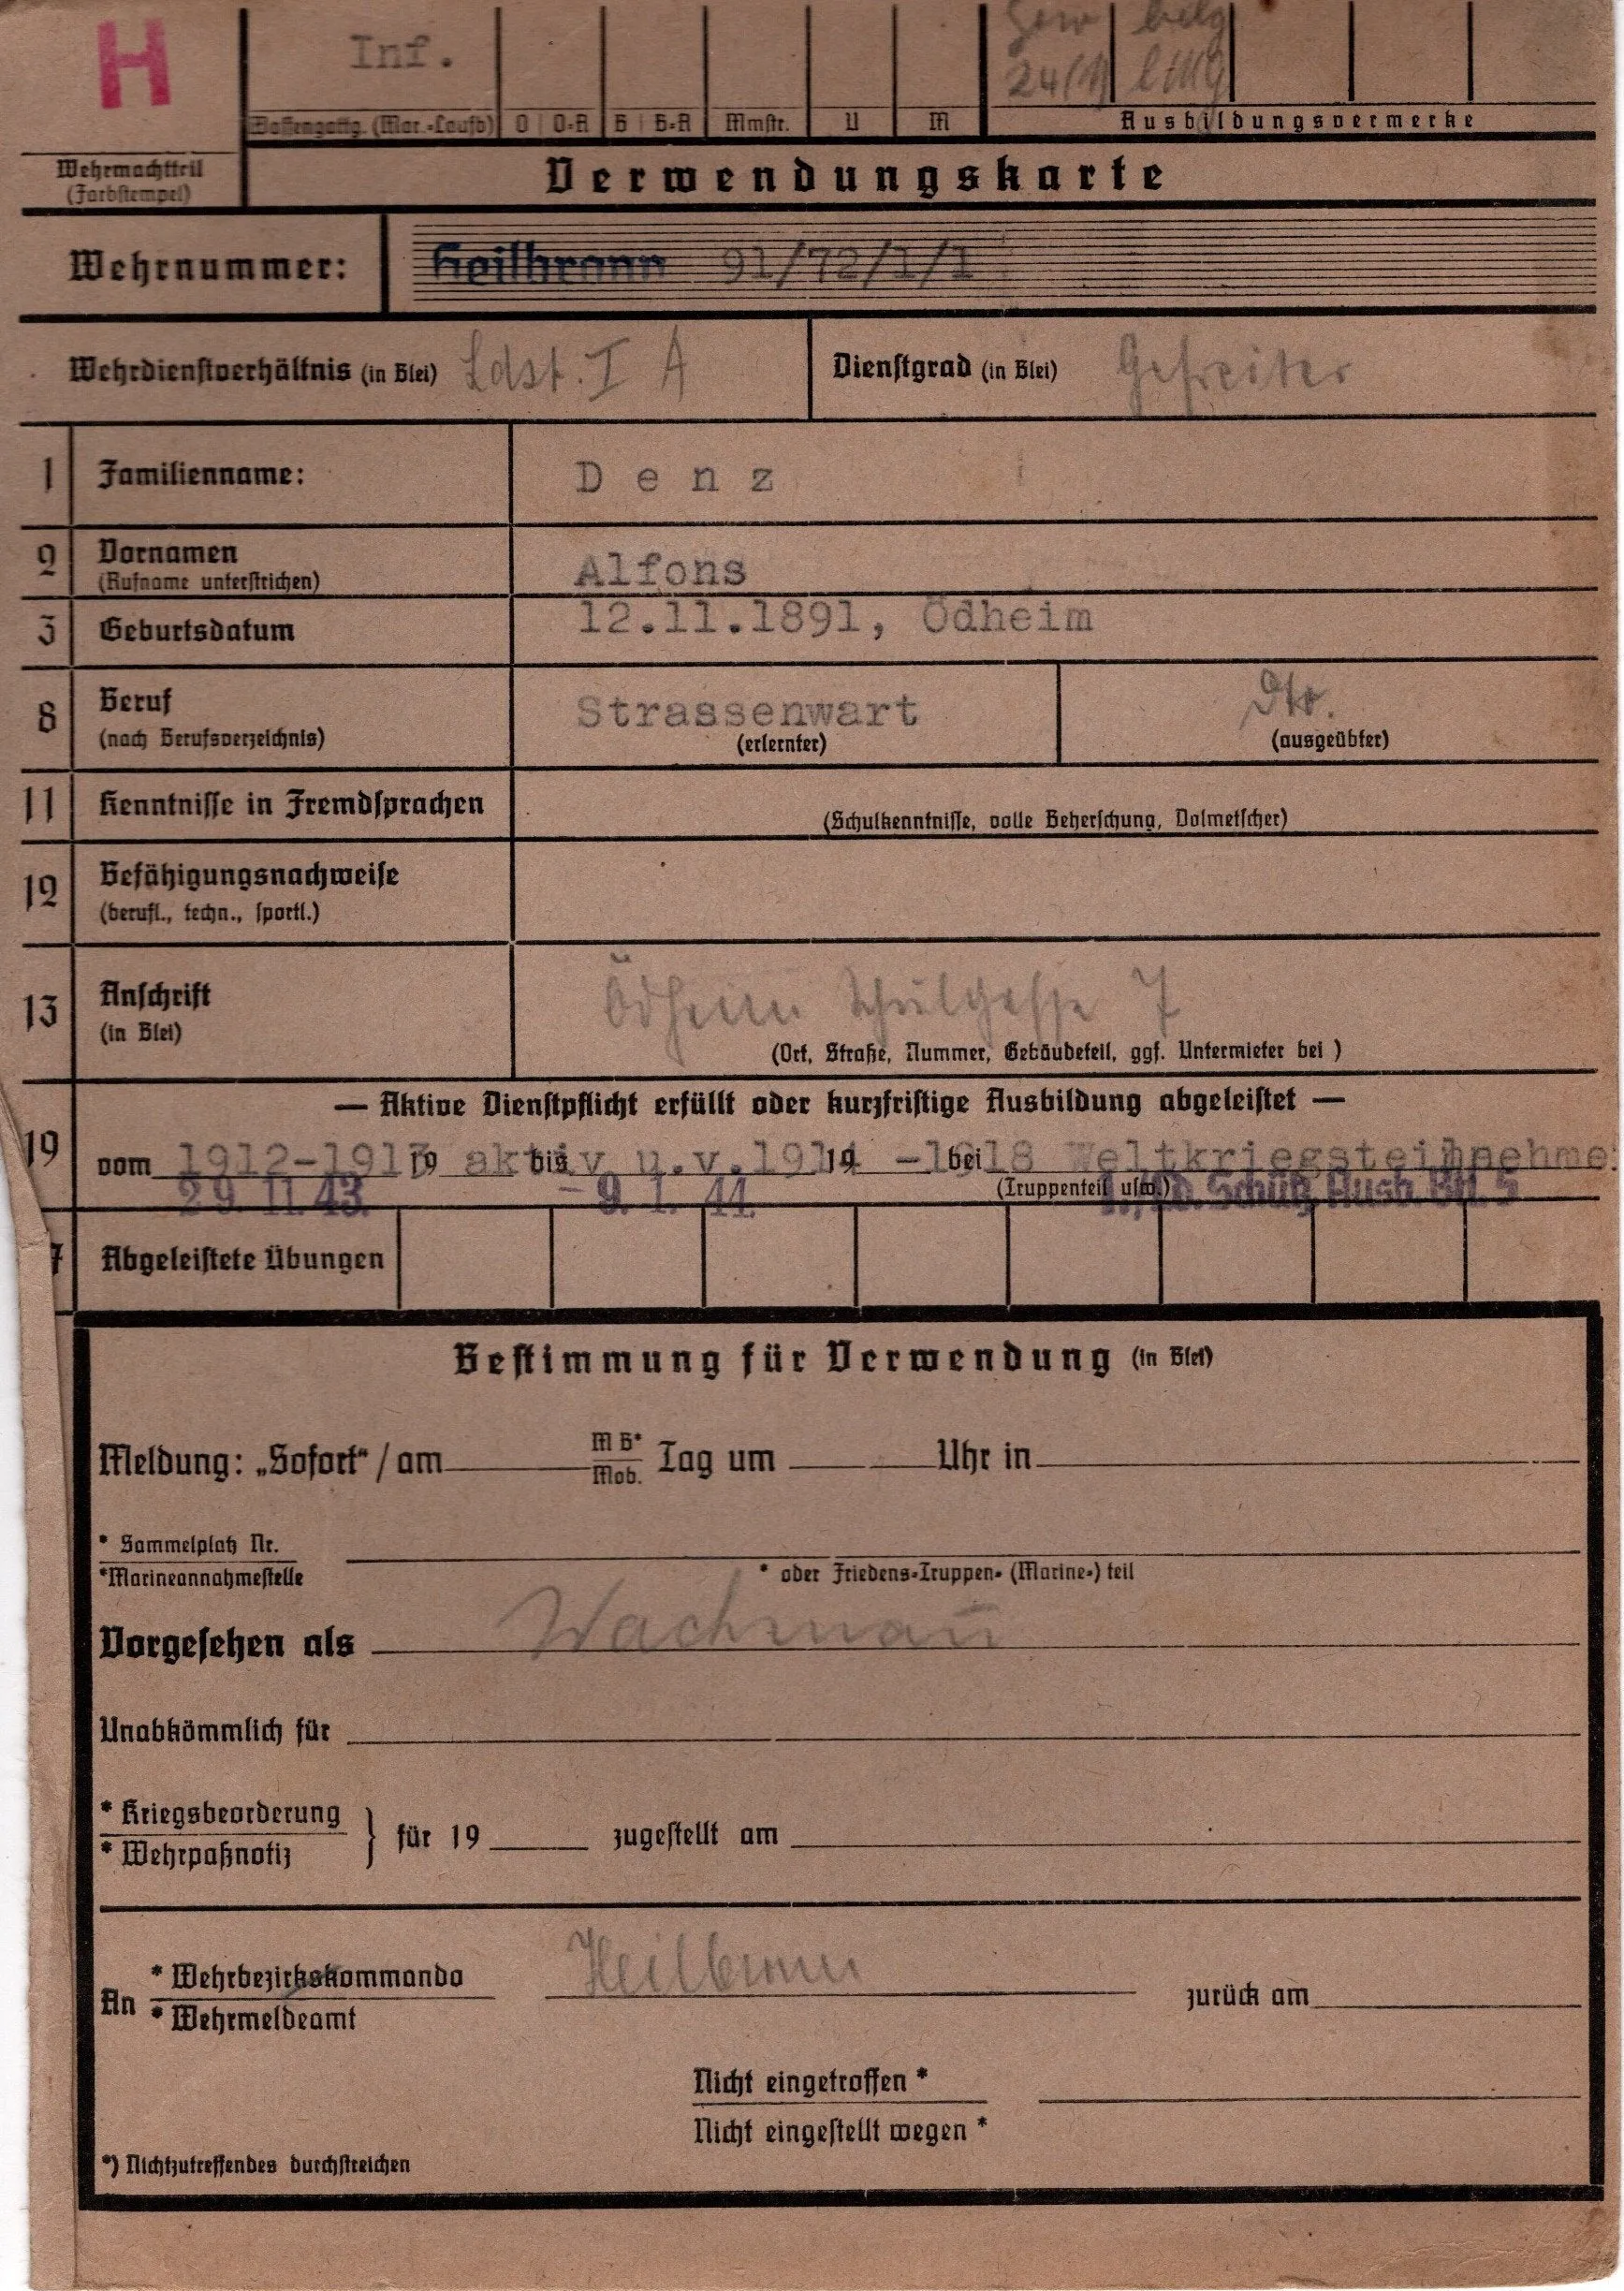 H
Inf.
Gew belg
24(t) lMG
Waffengattg. (Mar.-Laufb) O O-A B B-A Mmstr. U M Ausbildungsvermerke
Wehrmachtteil
(Farbstempel)
Verwendungskarte
Wehrnummer: Heilbronn 91/72/1/1
Wehrdienstverhältnis (in Blei) Ldst. I A Dienstgrad (in Blei) Gefreiter
1 Familienname: Denz
2 Vornamen Alfons
(Rufname unterstrichen)
3 Geburtsdatum 12.11.1891, Ödheim
8 Beruf Strassenwart
(nach Berufsverzeichnis) (erlernter) (ausgeübter)
11 Kenntnisse in Fremdsprachen
(Schulkenntnisse, volle Beherschung, Dolmetscher)
12 Befähigungsnachweise
(berufl., techn., sportl.)
13 Anschrift Ödheim Schulgasse 7
(in Blei)
(Ort, Straße, Nummer, Gebäudeteil, ggf. Untermieter bei )
— Aktive Dienstpflicht erfüllt oder kurzfristige Ausbildung abgeleistet —
19 vom 1912-1913 19 aktiv bis u.v.1914 19 -1918 bei Weltkriegsteilnehmer
(Truppenteil usw.)
29. 11. 43. - 9. 1. 44. Ld. Schütz. Ausb. Btl. 5
7 Abgeleistete Übungen
Bestimmung für Verwendung (in Blei)
Meldung: „Sofort“ / am M B* Tag um Uhr in
Mob.
* Sammelplatz Nr.
*Marineannahmestelle * oder Friedens-Truppen- (Marine-) teil
Vorgesehen als Wachmañ
Unabkömmlich für
* Kriegsbeorderung
* Wehrpaßnotiz } für 19 zugestellt am
An * Wehrbezirkskommando Heilbronn zurück am
* Wehrmeldeamt
Nicht eingetroffen *
Nicht eingestellt wegen *
*) Nichtzutreffendes durchstreichen